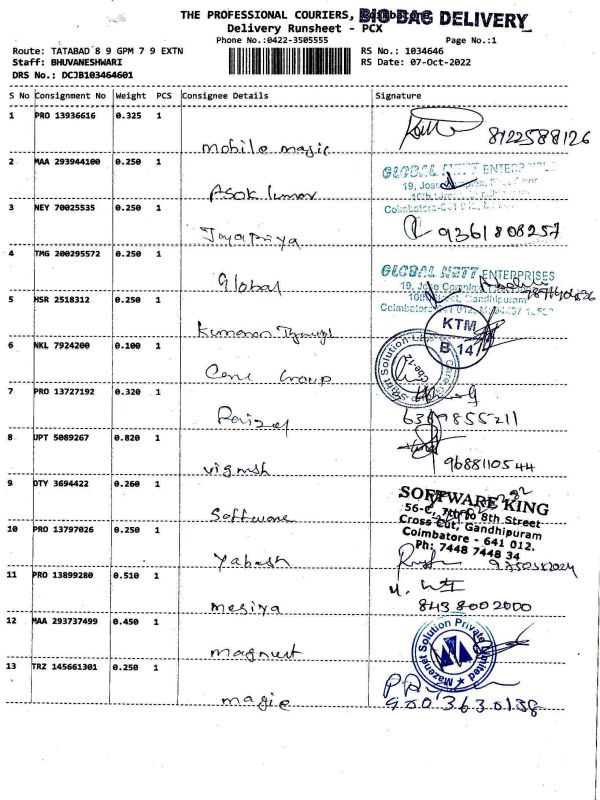 THE PROFESSIONAL COURIERS, BIG BAG DELIVERY
Delivery Runsheet - PCX
Phone No.:0422-3505555 Page No.:1
Route: TATABAD 8 9 GPM 7 9 EXTN RS No.: 1034646
Staff: BHUVANESHWARI RS Date: 07-Oct-2022
DRS No.: DCJB103464601
S No Consignment No Weight PCS Consignee Details Signature
1 PRO 13936616 0.325 1
mobile magic 8122588126
2 MAA 293944100 0.250 1
Asok kumar GLOBAL NETT ENTERPRISES
3 NEY 70025535 0.250 1
Jayapriya 9361808257
4 TMG 200295572 0.250 1
Global GLOBAL NETT ENTERPRISES
5 HSR 2518312 0.250 1
Kumaran KTM
B 147
6 NKL 7924200 0.100 1
Core Group
7 PRO 13727192 0.320 1
6369855211
8 UPT 5089267 0.820 1
vignesh 9688110544
9 OTY 3694422 0.260 1
Software SOFTWARE KING
56-C, 7th to 8th Street
Cross Cut, Gandhipuram
Coimbatore - 641 012.
Ph: 7448 7448 34
10 PRO 13797026 0.250 1
Yabesh
11 PRO 13899280 0.510 1
mesiya 8438002000
12 MAA 293737499 0.450 1
magnet Mazenet Solution Private Limited
13 TRZ 145661301 0.250 1
magic